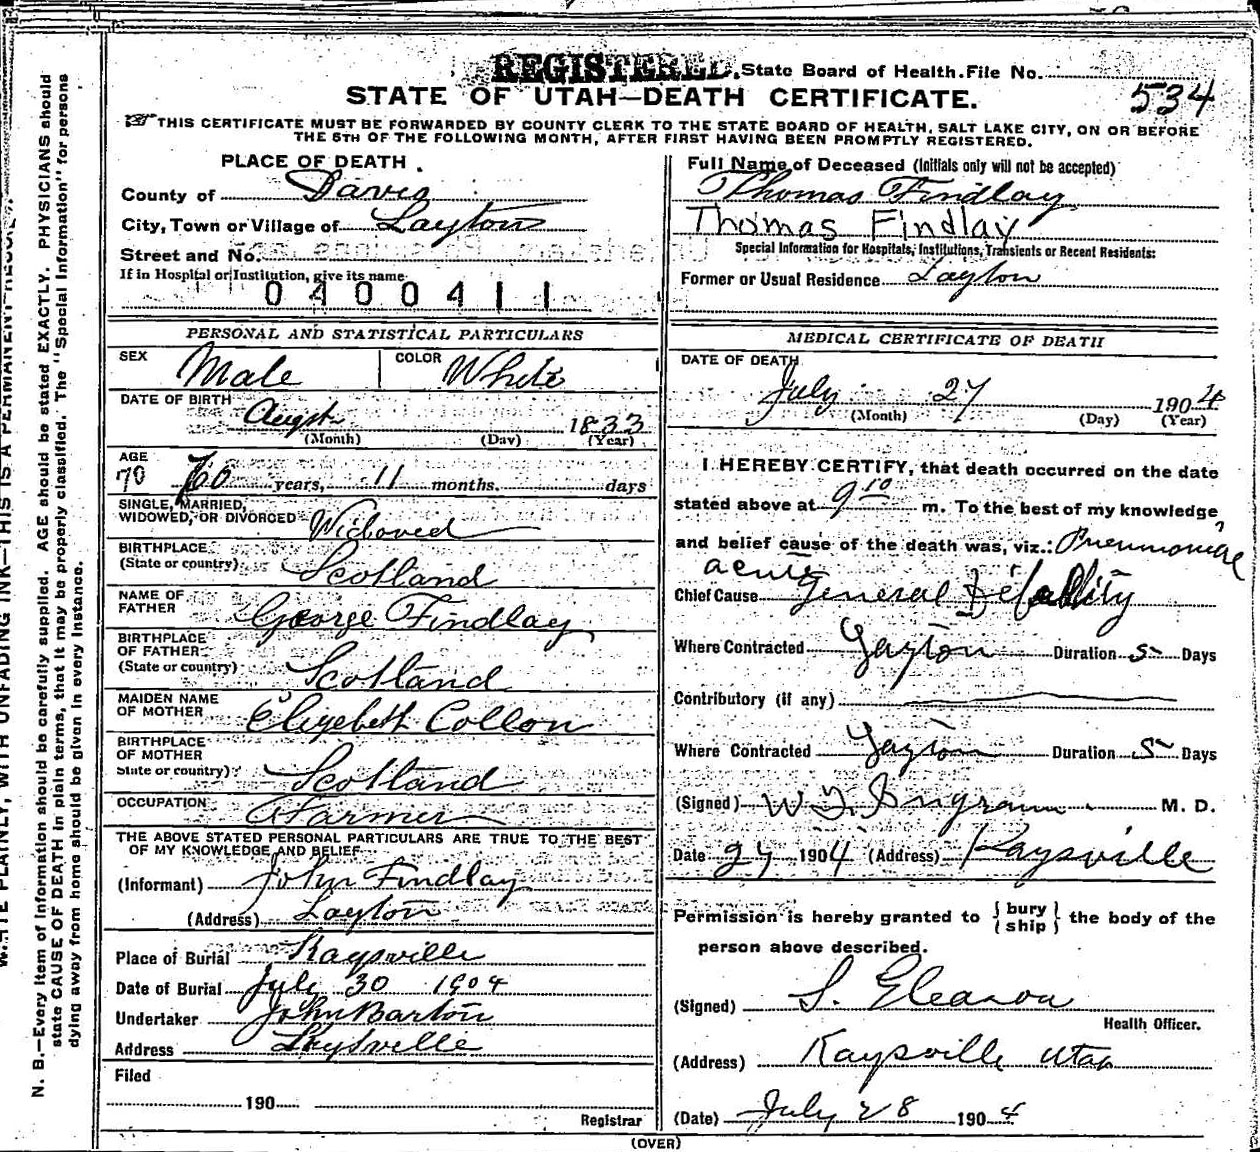 REGISTERED. State Board of Health. File No.
534
STATE OF UTAH—DEATH CERTIFICATE.
THIS CERTIFICATE MUST BE FORWARDED BY COUNTY CLERK TO THE STATE BOARD OF HEALTH, SALT LAKE CITY, ON OR BEFORE
THE 5TH OF THE FOLLOWING MONTH, AFTER FIRST HAVING BEEN PROMPTLY REGISTERED.
N. B.—Every item of information should be carefully supplied. AGE should be stated EXACTLY. PHYSICIANS should
state CAUSE OF DEATH in plain terms, that it may be properly classified. The "Special Information" for persons
dying away from home should be given in every instance.
PLAINLY, WITH UNFADING INK—THIS IS A PERMANENT
PLACE OF DEATH.
County of Davis
City, Town or Village of Layton
Street and No.
If in Hospital or Institution, give its name
0400411
PERSONAL AND STATISTICAL PARTICULARS
SEX Male COLOR White
DATE OF BIRTH
Augst 1833
(Month) (Day) (Year)
AGE
70 years, 11 months. days
SINGLE, MARRIED,
WIDOWED, OR DIVORCED Widoved
BIRTHPLACE
(State or country) Scotland
NAME OF
FATHER George Findlay
BIRTHPLACE
OF FATHER
(State or country) Scotland
MAIDEN NAME
OF MOTHER Elizebeth Collon
BIRTHPLACE
OF MOTHER
State or country) Scotland
OCCUPATION Farmer
THE ABOVE STATED PERSONAL PARTICULARS ARE TRUE TO THE BEST
OF MY KNOWLEDGE AND BELIEF
(Informant) John Findlay
(Address) Layton
Place of Burial Kaysville
Date of Burial July 30 1904
Undertaker John Barton
Address Kaysville
Filed
190
Registrar
Full Name of Deceased (Initials only will not be accepted)
Thomas Findlay
Thomas Findlay
Special Information for Hospitals, Institutions, Transients or Recent Residents:
Former or Usual Residence Layton
MEDICAL CERTIFICATE OF DEATH
DATE OF DEATH
July 27 1904
(Month) (Day) (Year)
I HEREBY CERTIFY, that death occurred on the date
stated above at 9 10 m. To the best of my knowledge
and belief cause of the death was, viz.: Pneumoniae ?
acute
Chief Cause General Debility
Where Contracted Layton Duration 5 Days
Contributory (if any)
Where Contracted Layton Duration 5 Days
(Signed) M. D.
Date 27 1904 (Address) Kaysville
Permission is hereby granted to { bury
ship } the body of the
person above described.
(Signed) S. Gleason
Health Officer.
(Address) Kaysville Utah
(Date) July 28 1904
(OVER)